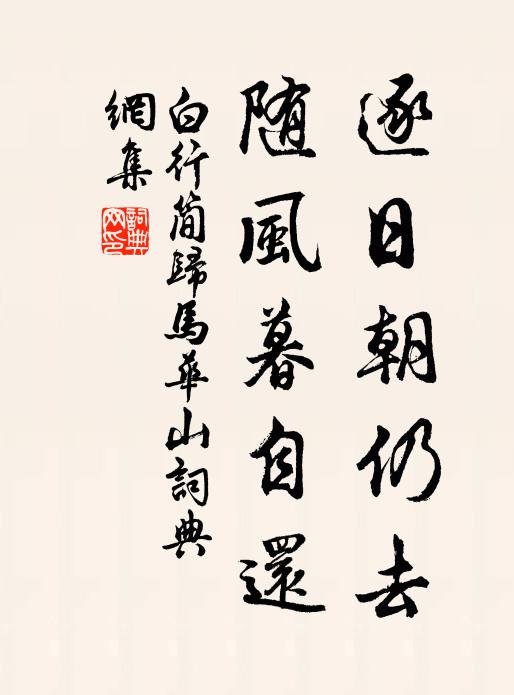 逐日朝仍去
随風暮自還
白行简歸馬華山詞典
網集
詞典
网印